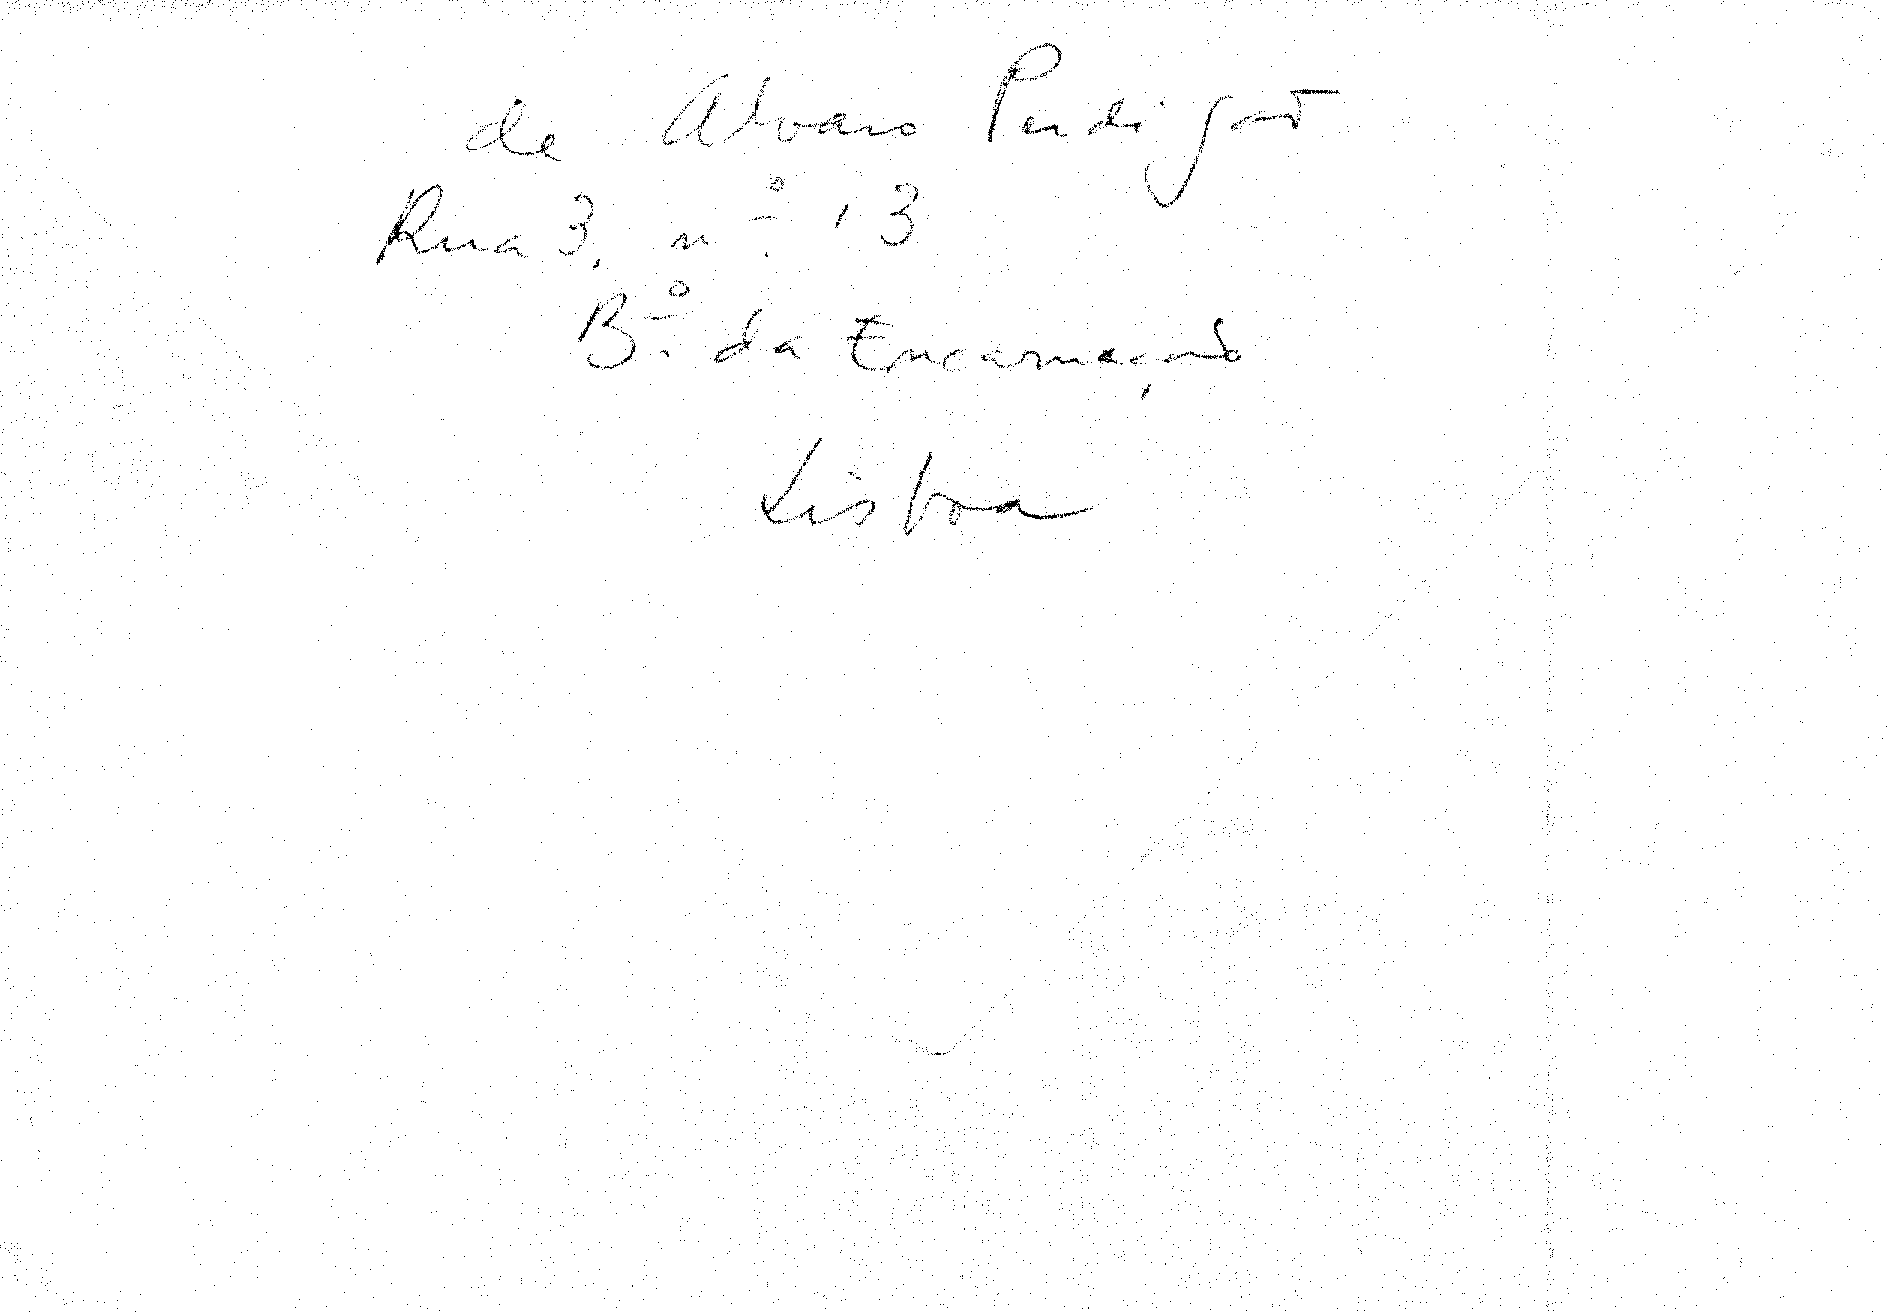 de Alvaro Perdigão
Rua 3, nº 13
Bº. da Encarnação
Lisboa